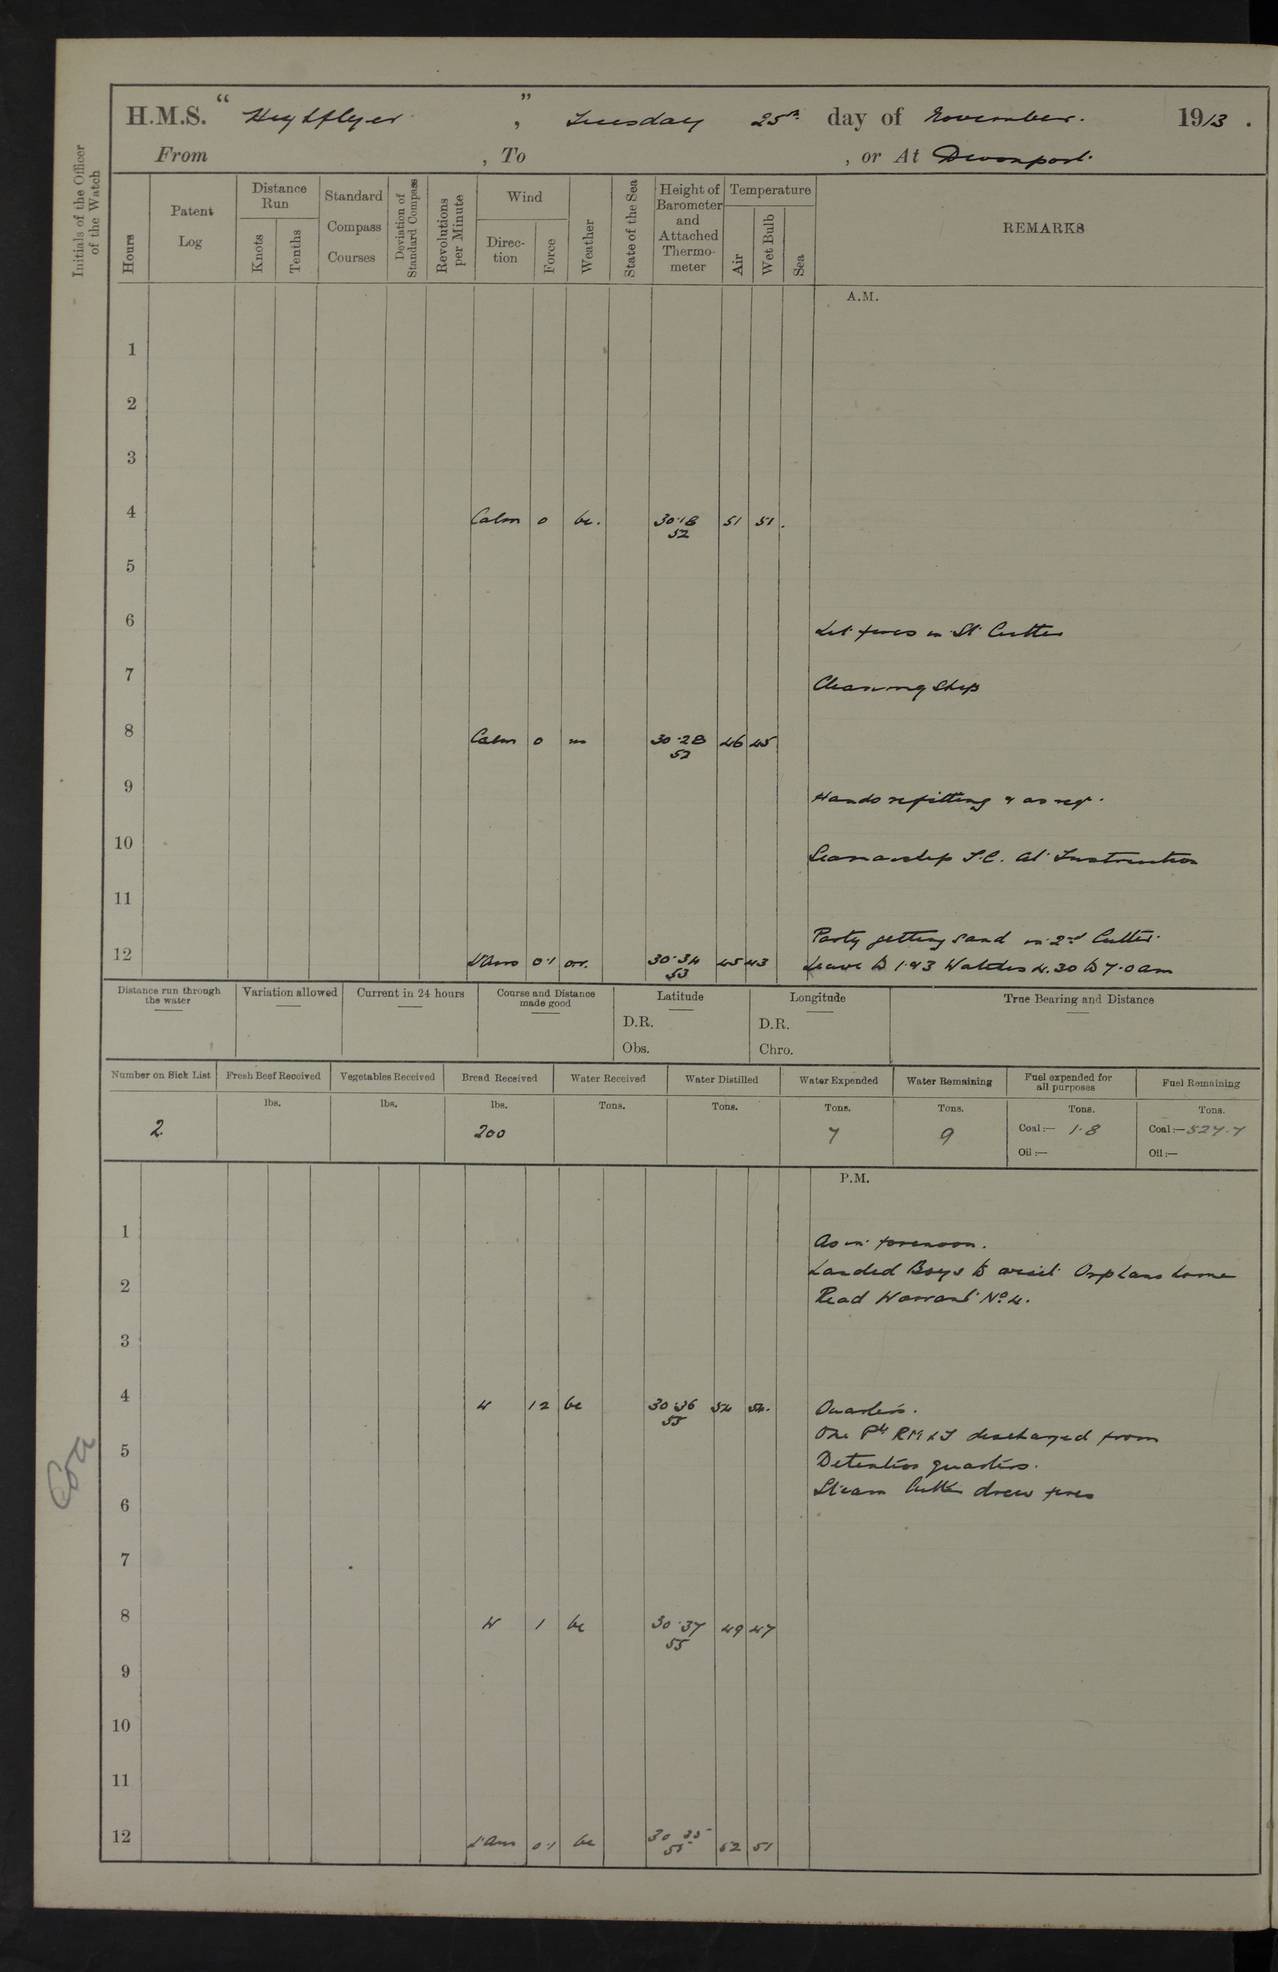 H.M.S. " Highflyer ", Tuesday 25th day of November. 1913.
From , To , or At Devonport.
Initials of the Officer of the Watch
Hours
Patent Log
Distance Run
Knots
Tenths
Standard Compass Courses
Deviation of Standard Compass
Revolutions per Minute
Wind
Direction
Force
Weather
State of the Sea
Height of Barometer and Attached Thermometer
Temperature
Air
Wet Bulb
Sea
REMARKS
A.M.
1
2
3
4 Calm 0 bc. 30.18 52 51 51.
5
6 Lit fires in St Cutter
7 Cleaning Ship
8 Calm 0 m 30.28 52 46 45
9 Hands refitting & as req.
10 Seamanship T.C. at Instruction
11
Party getting sand in 2nd Cutter.
12 0.1 30.34 53 45 43 Leave to 1 & 3 Watches 4.30 to 7.0 am
Distance run through the water
Variation allowed
Current in 24 hours
Course and Distance made good
Latitude
D.R.
Obs.
Longitude
D.R.
Chro.
True Bearing and Distance
Number on Sick List
Fresh Beef Received
Vegetables Received
Bread Received
Water Received
Water Distilled
Water Expended
Water Remaining
Fuel expended for all purposes
Fuel Remaining
lbs. lbs. lbs. Tons. Tons. Tons. Tons. Tons. Tons.
2 200 7 9 Coal:— 1.8 Coal:— 527.7
Oil:— Oil:—
P.M.
1 As in forenoon.
Landed Boys to visit Orphans home
2 Read Warrant No 4.
3
4 W 1 2 bc 30.36 55 54 54. Quarters.
One Pte RMLI discharged from
5 Detention quarters.
Steam Cutter drew fires
6
7
8 W 1 bc 30.37 55 49 47
9
10
11
12 0.1 bc 30 35 55 52 51